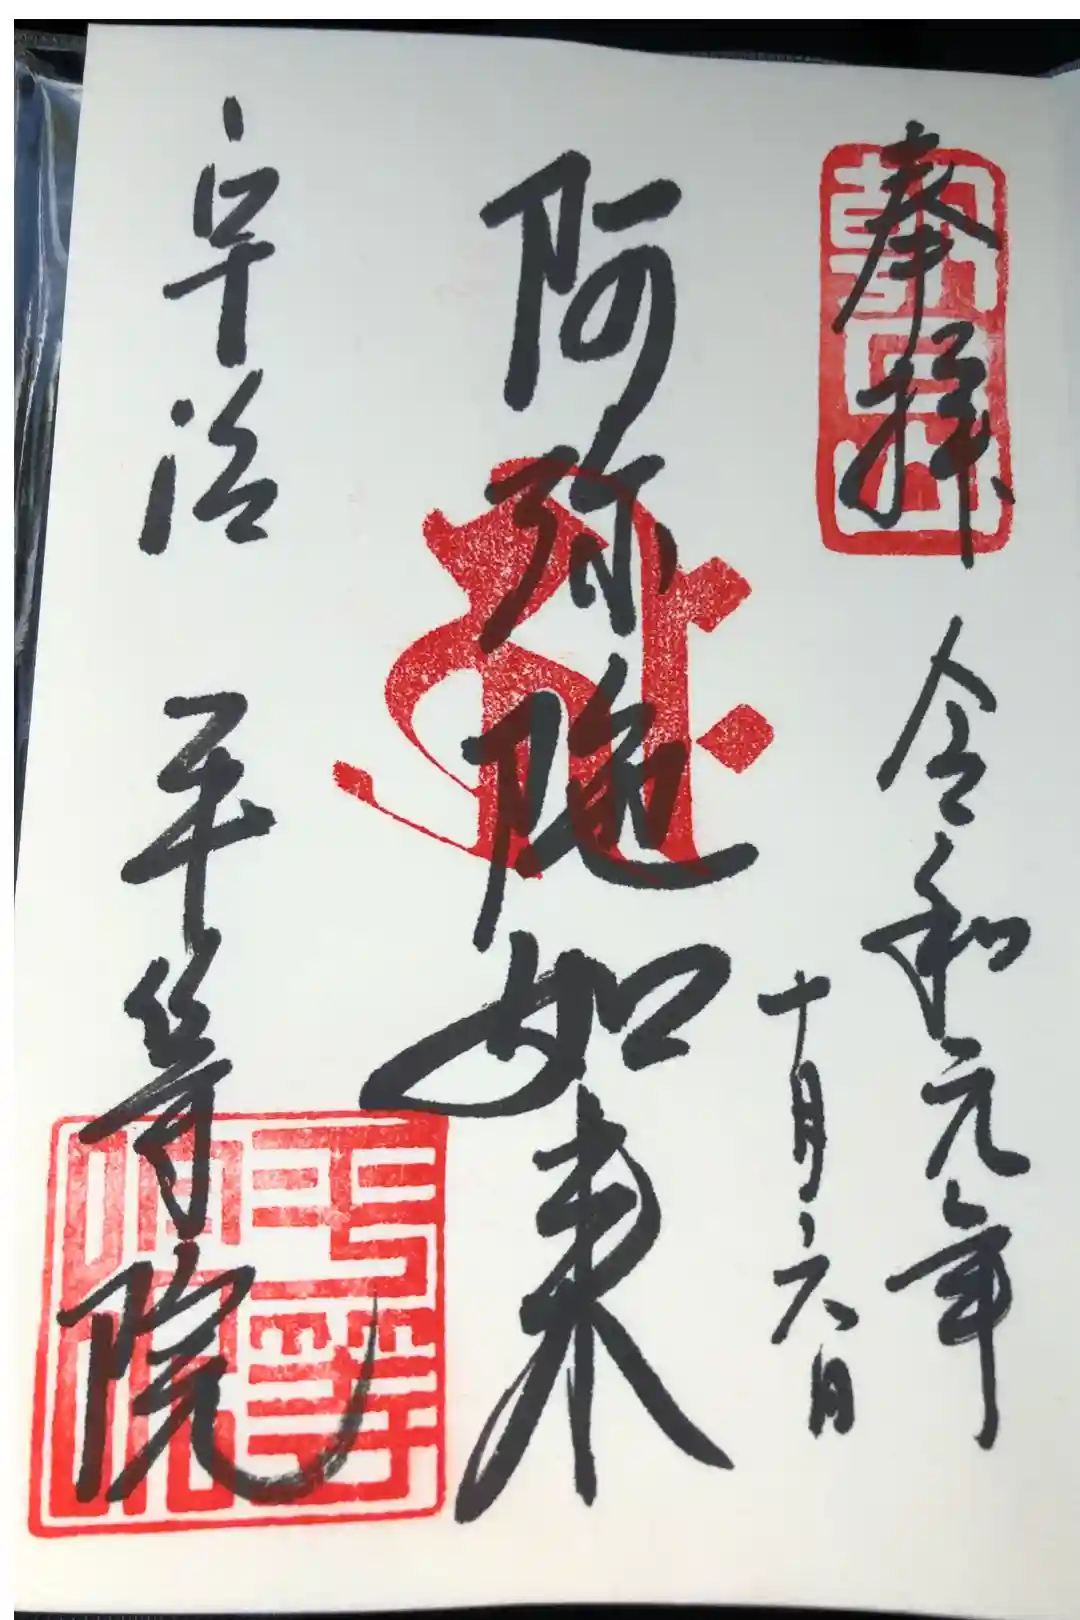 奉拝
令和元年
十月六日
阿弥陀如来
宇治 平等院
朝日山
平等院印